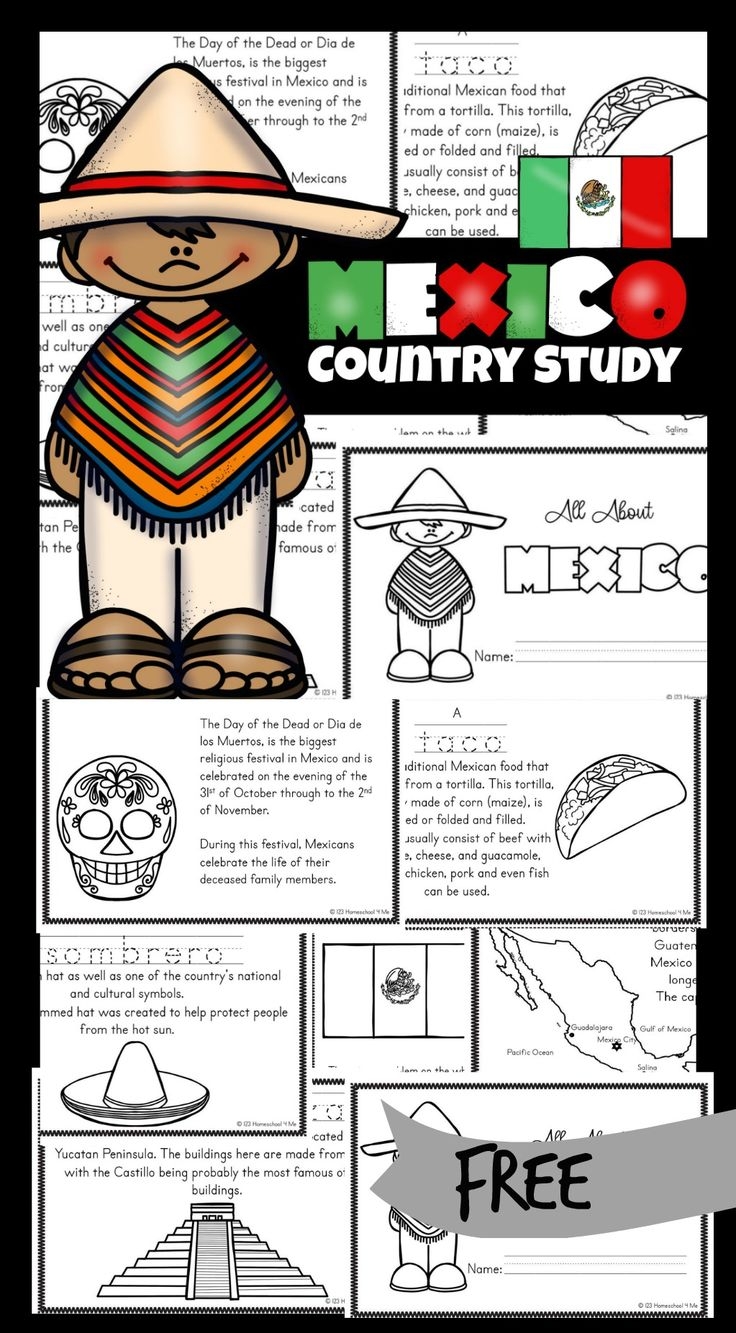 The Day of the Dead or Dia de
los Muertos, is the biggest
festival in Mexico and is
on the evening of the
through to the 2nd
Mexicans
A
taco
Mexican food that
from a tortilla. This tortilla,
made of corn (maize), is
or folded and filled.
usually consist of
cheese, and
chicken, pork and
can be used.
MEXICO
COUNTRY STUDY
well as one
Salina
All About
MEXICO
Name:
© 123
The Day of the Dead or Dia de
los Muertos, is the biggest
religious festival in Mexico and is
celebrated on the evening of the
31st of October through to the 2nd
of November.
During this festival, Mexicans
celebrate the life of their
deceased family members.
© 123 Homeschool 4 Me
A
taco
Mexican food that
from a tortilla. This tortilla,
made of corn (maize), is
or folded and filled.
usually consist of beef with
cheese, and guacamole,
chicken, pork and even fish
can be used.
© 123 Homeschool 4 Me
sombrero
hat as well as one of the country's national
and cultural symbols.
hat was created to help protect people
from the hot sun.
© 123 Homeschool 4 Me
Mexico
The
Guadalajara
Gulf of Mexico
Mexico City
Pacific Ocean
Salina
Yucatan Peninsula. The buildings here are made from
with the Castillo being probably the most famous of
buildings.
© 123 Homeschool 4 Me
All
FREE
Name:
© 123 Homeschool 4 Me